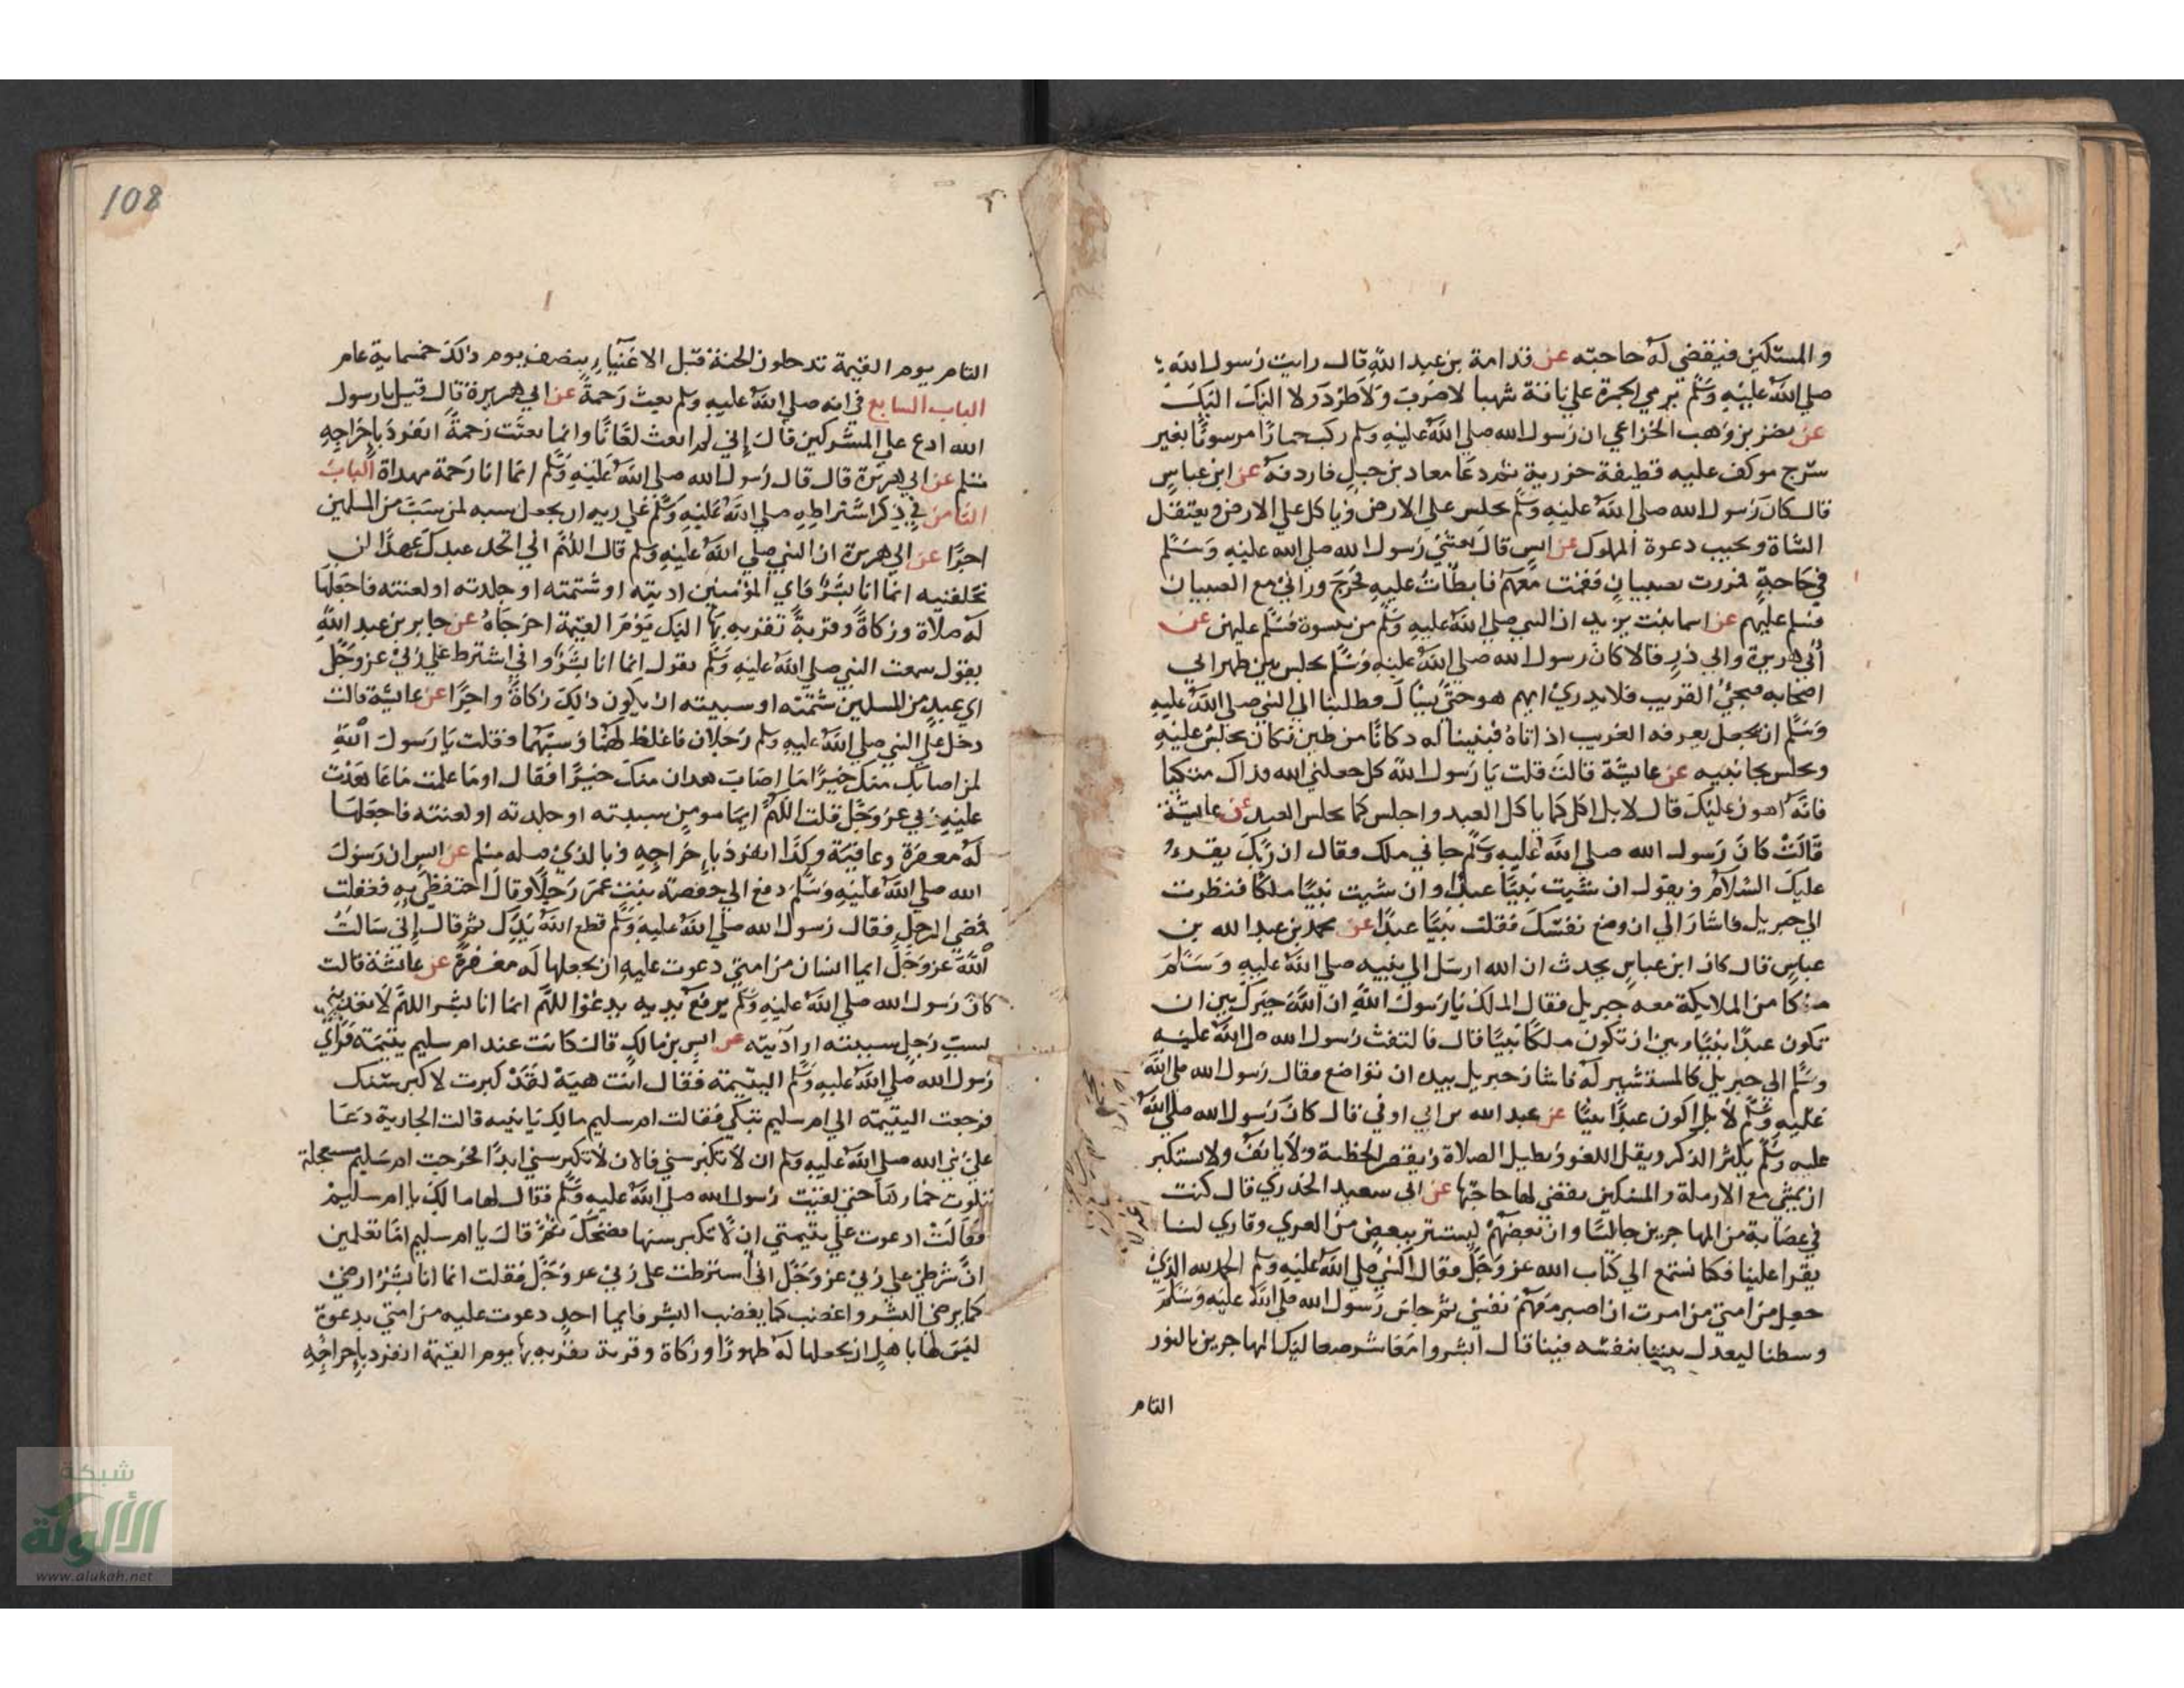 والمسكين فيقضى له حاجته عن قدامة بن عبد الله قال رايت رسول الله
صلى الله عليه وسلم يرمي الجمرة على ناقة شهبا لا ضرب ولا طرد ولا اليك اليك
عن نضر بن وهب الخزاعي ان رسول الله صلى الله عليه وسلم ركب حمارا مرسونا بغير
سرج موكف عليه قطيفة حزرية ثم دعا معاد بن جبل فاردفه عن ابن عباس
قال كان رسول الله صلى الله عليه وسلم يجلس على الارض وياكل على الارض ويعتقل
الشاة ويجيب دعوة المملوك عن انس قال بعثني رسول الله صلى الله عليه وسلم
في حاجة فمررت بصبيان فقمت معهم فابطات عليه فخرج وراني مع الصبيان
فسلم عليهم عن اسما بنت يزيد ان النبي صلى الله عليه وسلم مر بنسوة فسلم عليهن عن
أبي هريرة وابي ذر قالا كان رسول الله صلى الله عليه وسلم يجلس بين ظهراني
اصحابه فيجئ الغريب فلا يدري ايهم هو حتى يسال فطلبنا الى النبي صلى الله عليه
وسلم ان نجعل يعرفه الغريب اذا اتاه فبنينا له دكانا من طين فكان يجلس عليه
ونجلس بجانبيه عن عايشة قالت قلت يا رسول الله كل جعلني الله فداك متكيا
فانه اهون عليك قال لا بل اكل كما ياكل العبد واجلس كما يجلس العبد عن عايشة
قالت كان رسول الله صلى الله عليه وسلم جاني ملك فقال ان ربك يقرء
عليك السلام ويقول ان شيت نبيا عبدا وان شيت نبيا ملكا فنظرت
الى جبريل فاشار الي ان وضع نفسك فقلت نبيا عبدا عن محمد بن عبد الله بن
عباس قال كان ابن عباس يحدث ان الله ارسل الى نبيه صلى الله عليه وسلم
ملكا من الملايكة معه جبريل فقال الملك يا رسول الله ان الله خيرك بين ان
تكون عبدا نبيا وبين ان تكون ملكا نبيا قال فالتفت رسول الله صلى الله عليه
وسلم الى جبريل كالمستشير له فاشار جبريل بيده ان تواضع فقال رسول الله صلى الله
عليه وسلم لا بل اكون عبدا نبيا عن عبد الله بن ابي اوفي قال كان رسول الله صلى الله
عليه وسلم يكثر الذكر ويقل اللغو ويطيل الصلاة ويقصر الخطبة ولا يانف ولا يستكبر
ان يمشي مع الارملة والمسكين يقضي لها حاجتها عن ابي سعيد الخدري قال كنت
في عصابة من المهاجرين جالسا وان بعضهم ليستتر ببعض من العري وقاري لنا
يقرا علينا فكنا نستمع الى كتاب الله عز وجل فقال النبي صلى الله عليه وسلم الحمد لله الذي
جعل من امتي من امرت ان اصبر معهم نفسي ثم جلس رسول الله صلى الله عليه وسلم
وسطنا ليعدل بيننا بنفسه فينا قال ابشروا معاشر صعاليك المهاجرين بالنور
التام
108
التام يوم القيمة تدخلون الجنة قبل الاغنيا بنصف يوم وذلك خمسماية عام
الباب السابع في انه صلى الله عليه وسلم بعث رحمة عن ابي هريرة قال قيل يا رسول
الله ادع على المشركين قال إني لم ابعث لعانا وانما بعثت رحمة انفرد بإخراجه
مسلم عن ابي هريرة قال قال رسول الله صلى الله عليه وسلم انما انا رحمة مهداة الباب
الثامن في ذكر اشتراطه صلى الله عليه وسلم على ربه ان يجعل سبه لمن سب من المسلمين
اجرا عن ابي هريرة ان النبي صلى الله عليه وسلم قال اللهم اني اتخذ عندك عهدا لن
تخلفنيه انما انا بشر فاي المؤمنين اذيته او شتمته او جلدته او لعنته فاجعلها
له صلاة وزكاة وقربة تقربه بها اليك يوم القيمة اخرجاه عن جابر بن عبد الله
يقول سمعت النبي صلى الله عليه وسلم يقول انما انا بشر واني اشترط على ربي عز وجل
اي عبد من المسلمين شتمته او سببته ان يكون ذلك زكاة واجرا عن عايشة قالت
دخل على النبي صلى الله عليه وسلم رجلان فاغلظ لهما وسبهما فقلت يا رسول الله
لمن اصاب منك خيرا ما اصاب هذان منك خيرا فقال اوما علمت ما عاهدت
عليه ربي عز وجل قلت اللهم ايما مومن سببته او جلدته او لعنته فاجعلها
له مغفرة وعافية وكذا انفرد بإخراجه وبالذي قبله مسلم عن انس ان رسول
الله صلى الله عليه وسلم دفع الى حفصة بنت عمر رجلا وقال احتفظي به فغفلت
ومضى الرجل فقال رسول الله صلى الله عليه وسلم قطع الله يدك ثم قال إني سالت
الله عز وجل ايما انسان من امتي دعوت عليه ان يجعلها له مغفرة عن عائشة قالت
كان رسول الله صلى الله عليه وسلم يرفع يديه يدعوا اللهم انما انا بشر اللهم لا تعذبني
بسب رجل سببته او آذيته عن انس بن مالك قال كانت عند ام سليم يتيمة فراي
رسول الله صلى الله عليه وسلم اليتيمة فقال انت هيه لقد كبرت لا كبر سنك
فرجعت اليتيمة الى ام سليم تبكي فقالت ام سليم مالك يا بنيه قالت الجارية دعا
علي نبي الله صلى الله عليه وسلم ان لا تكبر سني فالان لا تكبر سني ابدا فخرجت ام سليم مستعجلة
تلوت خمارها حتى لقيت رسول الله صلى الله عليه وسلم فقال لها ما لك يا ام سليم
فقالت ادعوت على يتيمتي ان لا تكبر سنها فضحك ثم قال يا ام سليم اما تعلمين
ان شرطي على ربي عز وجل اني اشترطت على ربي عز وجل فقلت انما انا بشر ارضى
كما يرضى البشر واغضب كما يغضب البشر فايما احد دعوت عليه من امتي بدعوة
ليس لها باهل ان يجعلها له طهورا وزكاة وقربة يقربه بها يوم القيمة انفرد بإخراجه
شبكة
الألوكة
www.alukah.net